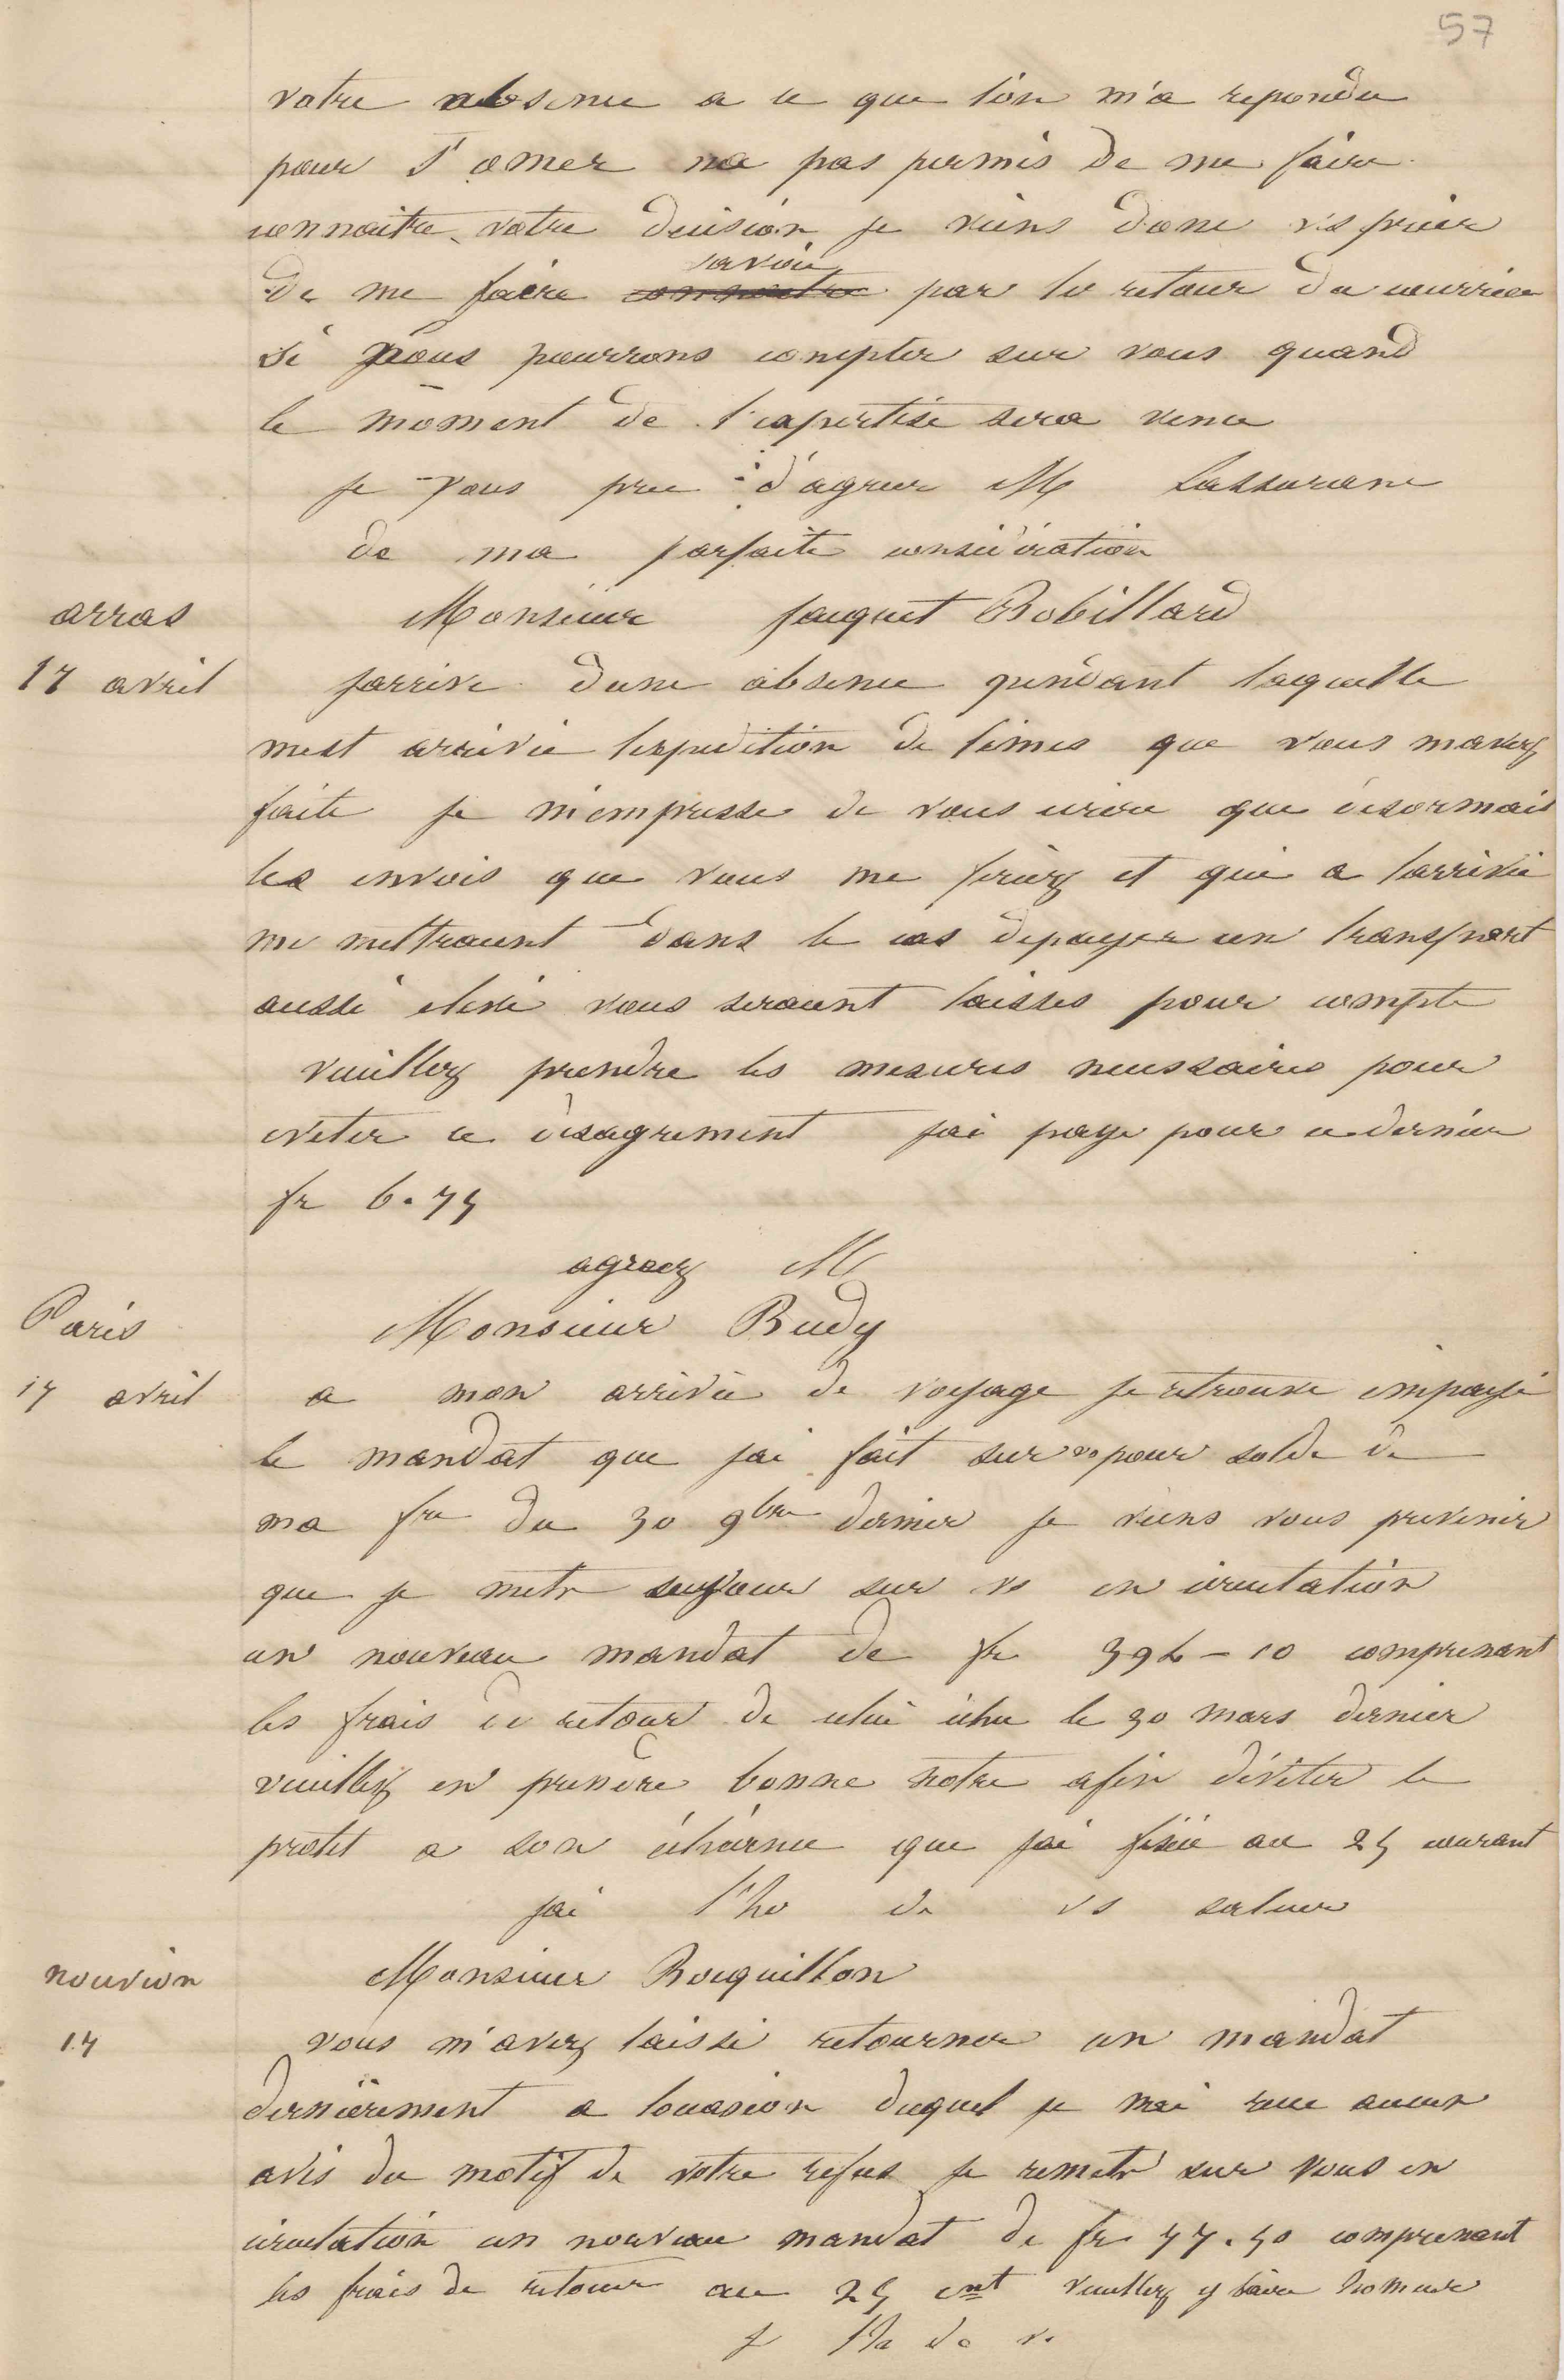 57
votre absence a ce que l'on m'a repondu
pour St omer na pas permis de me faire
connaitre votre decision je viens donc vs prier
de me faire connaitre savoir par le retour du courrier
si nous pourrons compter sur vous quand
le moment de l'expertise sera venu
je vous prie d'agreer M Lassurance
de ma parfaite consideration
arras
Monsieur fauquet Robillard
17 avril
jarrive dune absence pendant laquelle
mest arrivée lexpedition de limes que vous mavez
faite je m'empresse de vous ecrire que desormais
les envois que vous me feriez et qui a larrivée
me mettraient dans le cas depayer un transport
aussi elevé vous seraient laisses pour compte
veuillez prendre les mesures necessaires pour
eviter ce desagrement jai paye pour ce dernier
fr 6.75
agreez M
Paris
Monsieur Budy
17 avril
a mon arrivée de voyage je retrouve impayé
le mandat que jai fait sur vs pour solde de
ma fre du 30 9bre dernier je viens vous prevenir
que je mets sur vs en circulation
un nouveau mandat de fr 396-10 comprenant
les frais de retour de celui échu le 30 mars dernier
veuillez en prendre bonne notre afin d'éviter le
protet a son écheance que jai fixée au 25 courant
jai l'ho de vs saluer
nouvion
Monsieur Bocquillon
17
vous m'avez laissé retourner un mandat
dernièrement a loccasion duquel je nai recu aucun
avis du motif de votre refus je remets sur vous en
circulation un nouveau mandat de fr 77.50 comprenant
les frais de retour au 25 cnt veuillez y faire honneur
j l'ha de v.